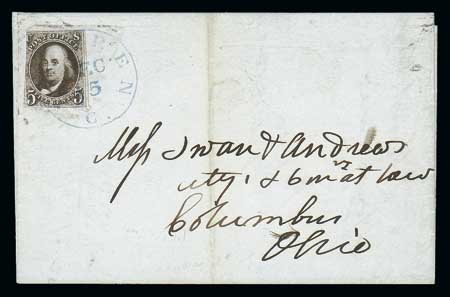 POST OFFICE
5 5
DEC
5
Mess Swan & Andrews
Atty's & Con at law
Columbus
Ohio